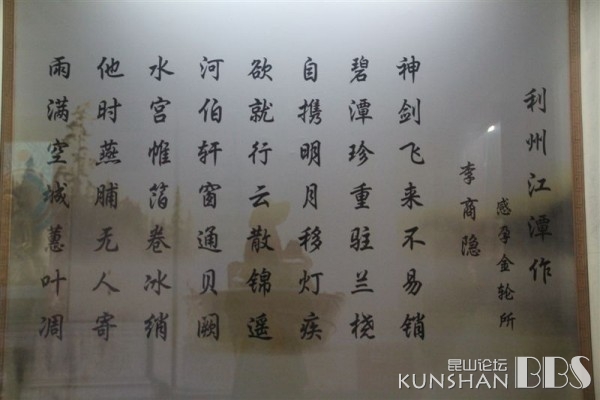 利州江潭作
感孕金轮所
李商隐
神剑飞来不易销
碧潭珍重驻兰桡
自携明月移灯疾
欲就行云散锦遥
河伯轩窗通贝阙
水宫帷箔卷冰绡
他时燕脯无人寄
雨满空城蕙叶凋
昆山论坛
KUNSHAN BBS